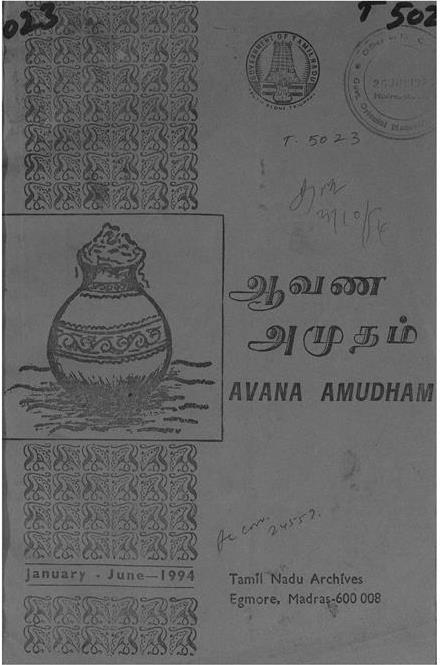 023
T 502
GOVERNMENT OF TAMILNADU
T. 5023
ஆவண
அமுதம்
AVANA AMUDHAM
24559.
January - June—1994
Tamil Nadu Archives
Egmore, Madras-600 008